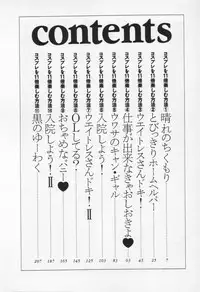 contents
コスプレを11倍楽しむ方法① 晴れのちくもり 7
コスプレを11倍楽しむ方法② とびっきりホームヘルパー 25
コスプレを11倍楽しむ方法③ ウエイトレスさんドーキ! 43
コスプレを11倍楽しむ方法④ 仕事が出来なきゃおしおきよ♥ 63
コスプレを11倍楽しむ方法⑤ ウワサのキャン・ギャル 83
コスプレを11倍楽しむ方法⑥ 入院しよう! 103
コスプレを11倍楽しむ方法⑦ ウエイトレスさんドーキ!Ⅱ 125
コスプレを11倍楽しむ方法⑧ OLしてる? 145
コスプレを11倍楽しむ方法⑨ おちゃめなバニー♥ 165
コスプレを11倍楽しむ方法⑩ 入院しよう!Ⅱ 187
コスプレを11倍楽しむ方法⑪ 黒のゆーわく 207